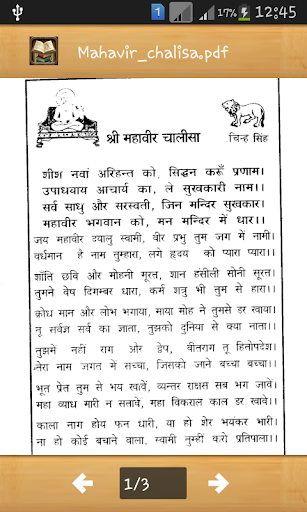 17% 12:45
Mahavir_chalisa.pdf
श्री महावीर चालीसा
चिन्ह सिंह
शीश नवां अरिहन्त को, सिद्धन करूँ प्रणाम।
उपाधयाय आचार्य का, ले सुखकारी नाम।।
सर्व साधु और सरस्वती, जिन मन्दिर सुखकार।
महावीर भगवान को, मन मन्दिर में धार।।
जय महावीर दयालु स्वामी, वीर प्रभु तुम जग में नामी।
वर्धमान है नाम तुम्हारा, लगे हृदय को प्यारा प्यारा।।
शाँति छवि और मोहनी मूरत, शान हंसीली सोनी सूरत।
तुमने वेष दिगम्बर धारा, कर्म शत्रु भी तुम से हारा।।
क्रोध मान और लोभ भगाया, माया मोह ने तुमसे डर खाया।
तू सर्वज्ञ सर्व का ज्ञाता, तुझको दुनिया से क्या नाता।।
तुझमें नहीं राग और द्वेष, वीतराग तू हितोपदेश।
तेरा नाम जगत में सच्चा, जिसको जाने बच्चा बच्चा।।
भूत प्रेत तुम से भय खावें, व्यन्तर राक्षस सब भग जावें।
महा व्याध मारी न सतावे, महा विकराल काल डर खावे।।
काला नाग होय फन धारी, या हो शेर भयंकर भारी।
ना हो कोई बचाने वाला, स्वामी तुम्हीं करो प्रतिपाला।।
1/3